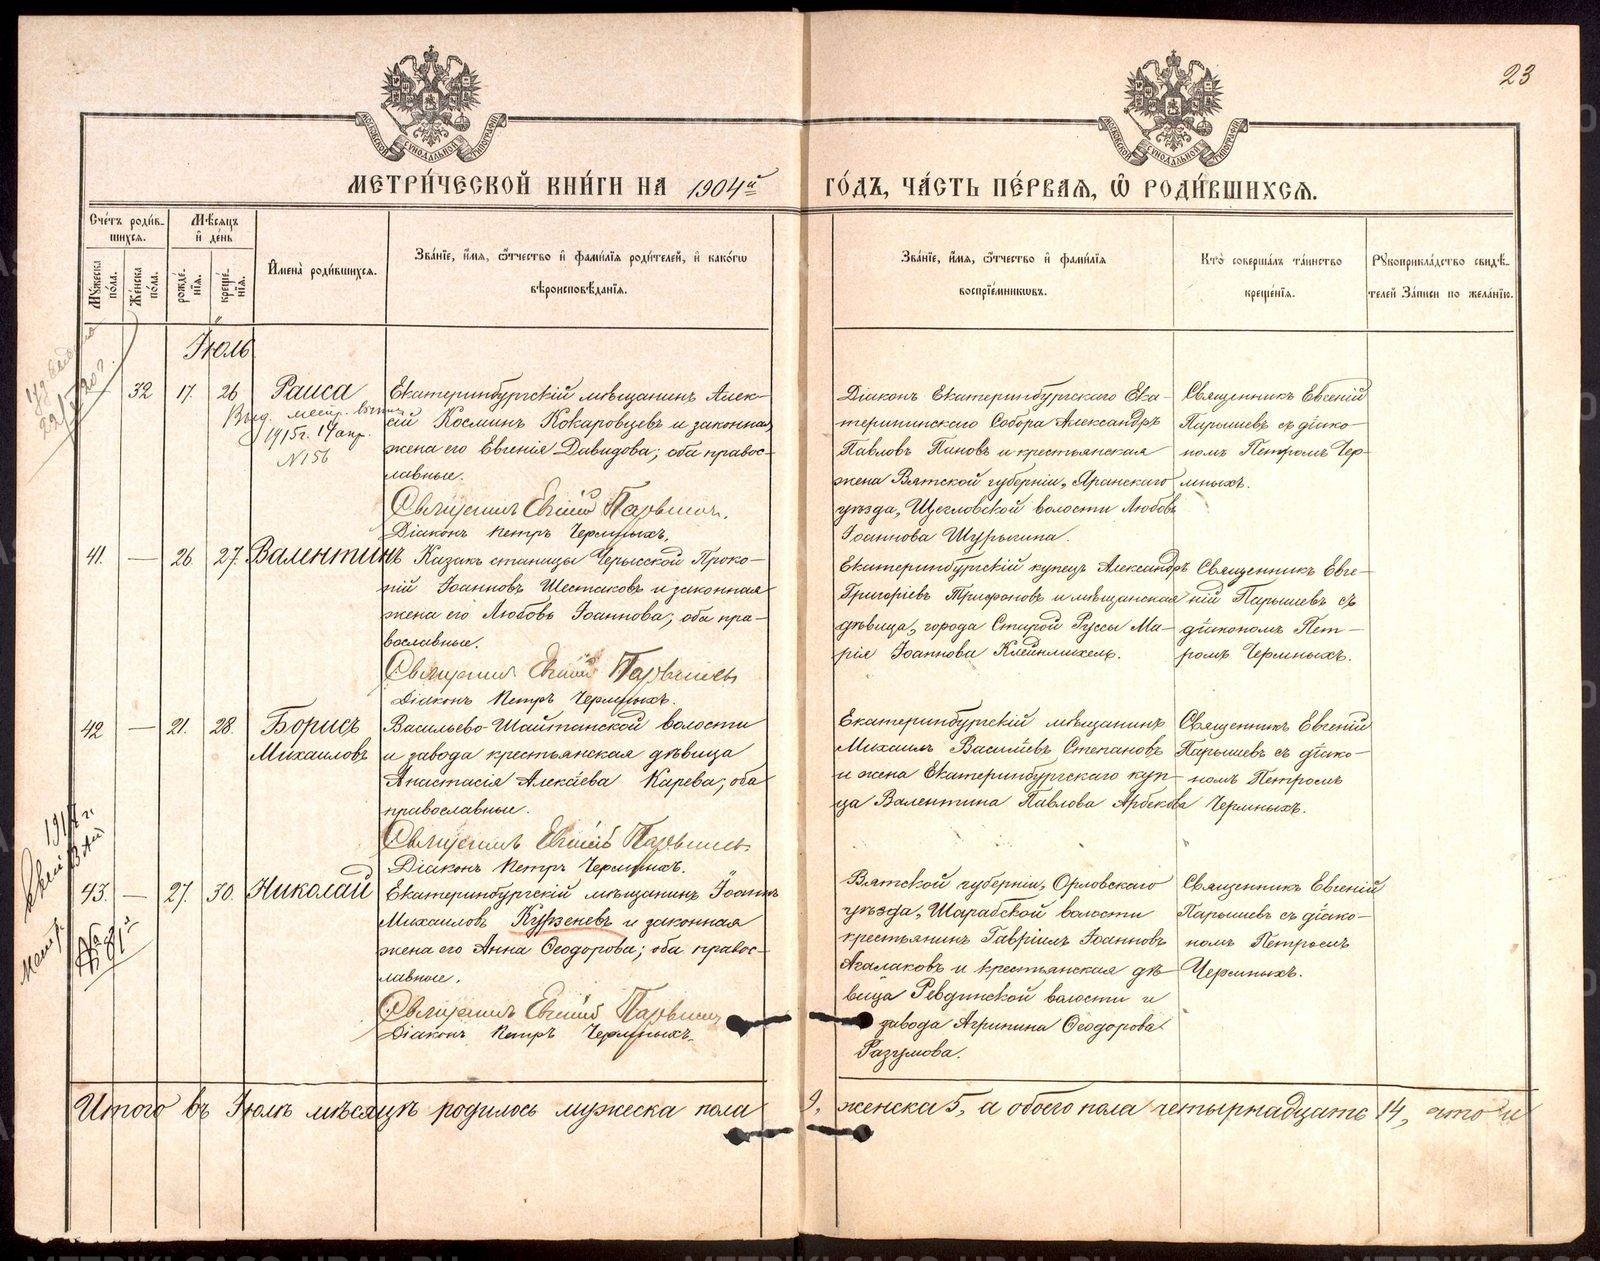 23
МОСКОВСКОЙ СѴНОДАЛЬНОЙ ТИПОГРАФІИ
МОСКОВСКОЙ СѴНОДАЛЬНОЙ ТИПОГРАФІИ
МЕТРИ́ЧЕСКОЙ КНИ́ГИ НА 1904й ГО́ДЪ, ЧА́СТЬ ПЕ́РВАЯ, Ѡ РОДИ́ВШИХСѦ.
Сче́тъ роди́в-
шихсѧ.
Мꙋ́жеска по́ла.
Же́нска по́ла.
Мѣ́сѧцъ
и҆ де́нь
рожде́-
нїѧ.
креще́-
нїѧ.
И҆мена̀ роди́вшихсѧ.
Зва́нїе, и҆́мѧ, ѻ҆́тчество и҆ фами́лїѧ роди́телей, и҆ како́гѡ
вѣроисповѣ́данїѧ.
Зва́нїе, и҆́мѧ, ѻ҆́тчество и҆ фами́лїѧ
воспрїе́мникѡвъ.
Кто̀ соверша́лъ та́инство
креще́нїѧ.
Рꙋкоприкла́дство свидѣ́-
телей за́писи по жела́нїю.
Іюль
32 17. 26 Раиса
Выд. метр. вып.
1915г. 14 апр.
№156
Екатеринбургскій мѣщанинъ Алек-
сій Косминъ Кокаровцевъ и законная
жена его Евгенія Давидова; оба правос-
лавные.
Священникъ Евгеній Парышевъ.
Діаконъ Петръ Чермныхъ.
Діаконъ Екатеринбургскаго Ека-
терининскаго Собора Александръ
Павловъ Пановъ и крестьянская
жена Вятской губерніи, Яранскаго
уѣзда, Щегловской волости Любовь
Іоаннова Шурыгина.
Священникъ Евгеній
Парышевъ съ діако-
номъ Петромъ Чер-
мныхъ.
41. — 26. 27. Валентинъ
Казакъ станицы Проко-
пій Іоанновъ Шестаковъ и законная
жена его Любовь Іоаннова; оба пра-
вославные.
Священникъ Евгеній Парышевъ
Діаконъ Петръ Чермныхъ.
Екатеринбургскій купецъ Александръ
Григоріевъ Трифоновъ и мѣщанская
дѣвица, города Старой Руссы Ма-
рія Іоаннова Клейнмихель.
Священникъ Евге-
ній Парышевъ съ
діакономъ Пет-
ромъ Чермныхъ.
42 — 21. 28. Борисъ
Михаиловъ
Васильево-Шайтанской волости
и завода крестьянская дѣвица
Анастасія Алексѣева Карева; оба
православные.
Священникъ Евгеній Парышевъ
Діаконъ Петръ Чермныхъ.
Екатеринбургскій мѣщанинъ
Михаилъ Василіевъ Степановъ
и жена Екатеринбургскаго куп-
ца Валентина Павлова Арбекова
Священникъ Евгеній
Парышевъ съ діако-
номъ Петромъ
Чермныхъ.
1917г.
43. — 27. 30. Николай
№ 81й
Екатеринбургскій мѣщанинъ Іоаннъ
Михаиловъ Курзеневъ и законная
жена его Анна Ѳеодорова; оба правос-
лавные.
Священникъ Евгеній Парышевъ
Діаконъ Петръ Чермныхъ.
Вятской губерніи, Орловскаго
уѣзда, Шарабской волости
крестьянинъ Гавріилъ Іоанновъ
Агалаковъ и крестьянская дѣ-
вица Ревдинской волости и
завода Агрипина Ѳеодорова
Разумова.
Священникъ Евгеній
Парышевъ съ діако-
номъ Петромъ
Чермныхъ.
Итого въ Іюлѣ мѣсяцѣ родилось мужеска пола 9, женска 5, а обоего пола четырнадцать 14, что и